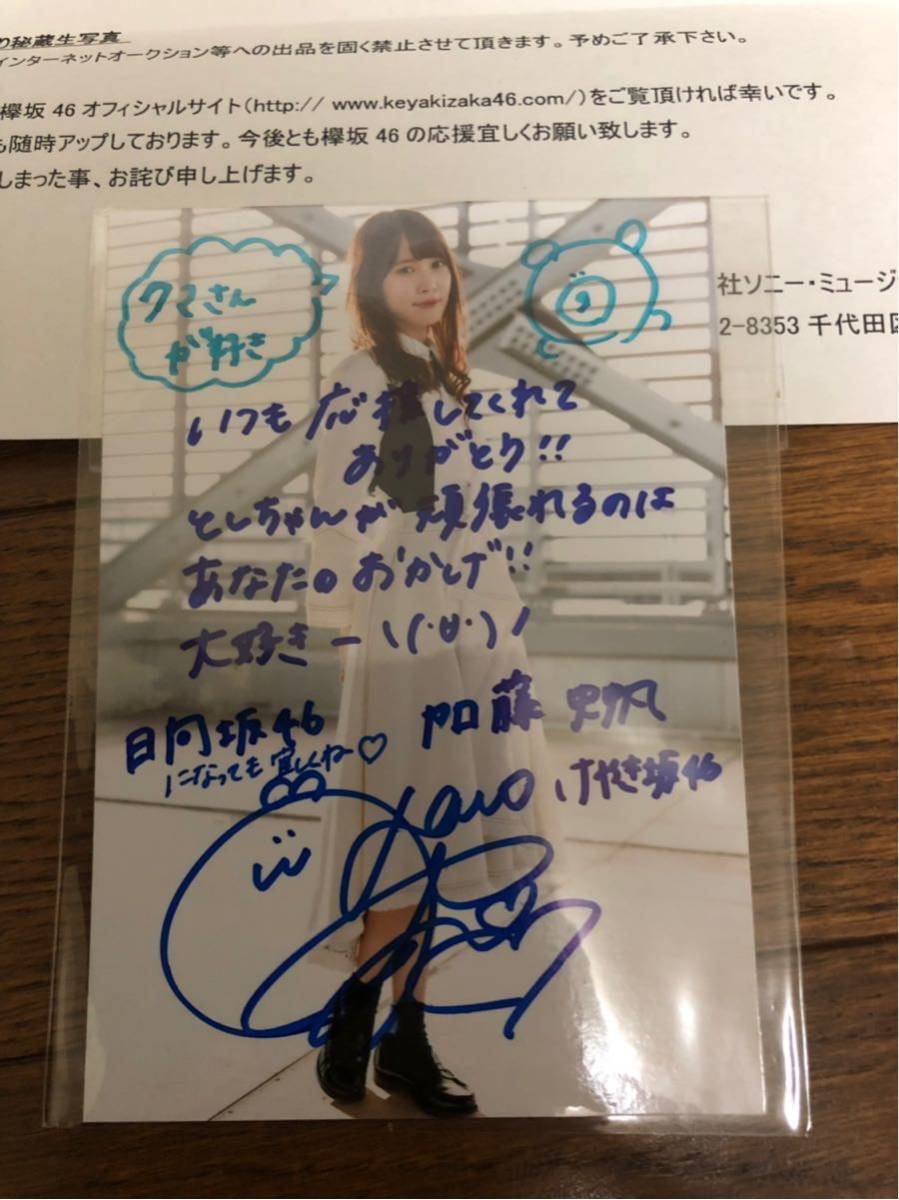 り秘蔵生写真
インターネットオークション等への出品を固く禁止させて頂きます。予めご了承下さい。
欅坂46オフィシャルサイト(http:// www.keyakizaka46.com/)をご覧頂ければ幸いです。
も随時アップしております。今後とも欅坂46の応援宜しくお願い致します。
しまった事、お詫び申し上げます。
社ソニー・ミュージ
2-8353 千代田区
クマさん
が好き
いつも応援してくれて
ありがとう!!
としちゃんが頑張れるのは
あなたのおかげ!!
大好きー\(·∀·)/
日向坂46
になっても宜しくねー♡
加藤史帆
けやき坂46